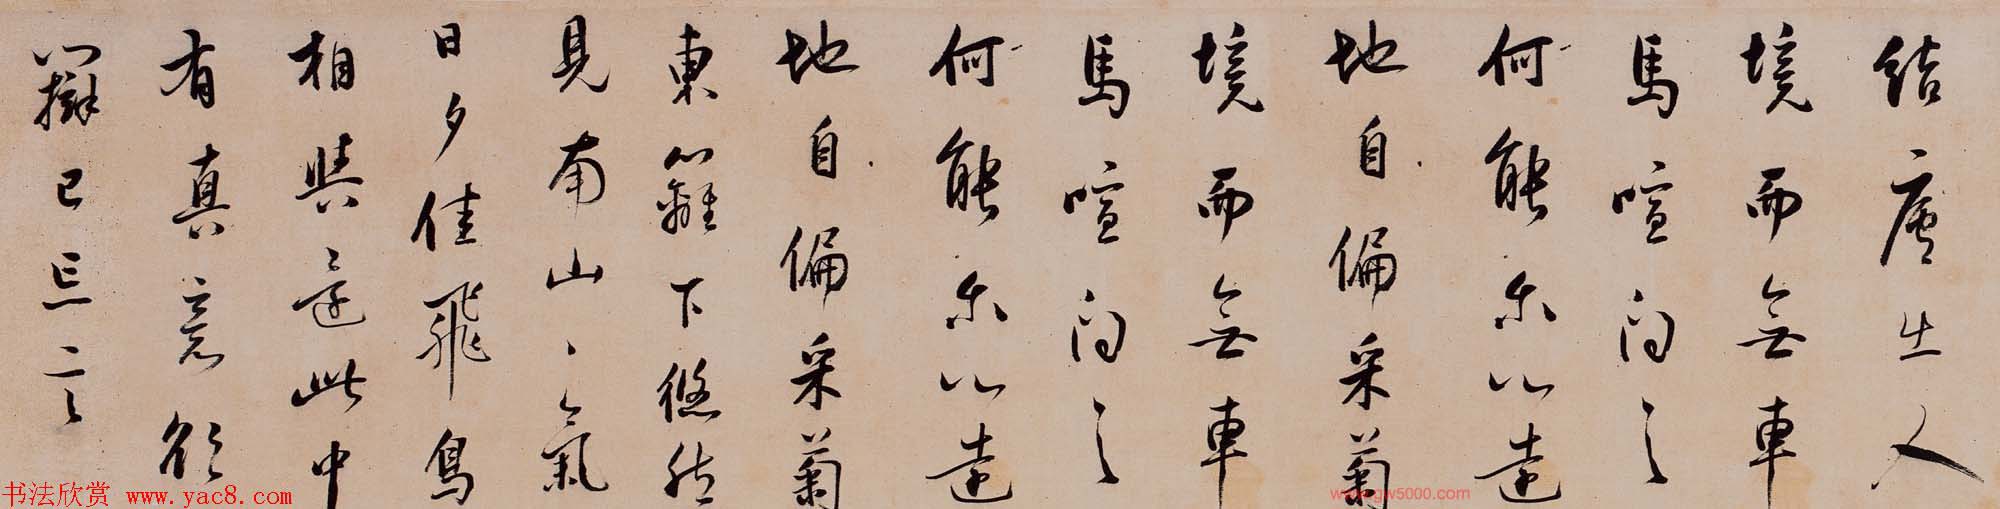 結廬在人
境而無車
馬喧问之
何能尔心遠
地自偏采菊
境而無車
馬喧问之
何能尔心遠
地自偏采菊
東籬下悠然
見南山山氣
日夕佳飛鳥
相與還此中
有真意欲
辯已忘言
书法欣赏 www.yac8.com
www.gw5000.com